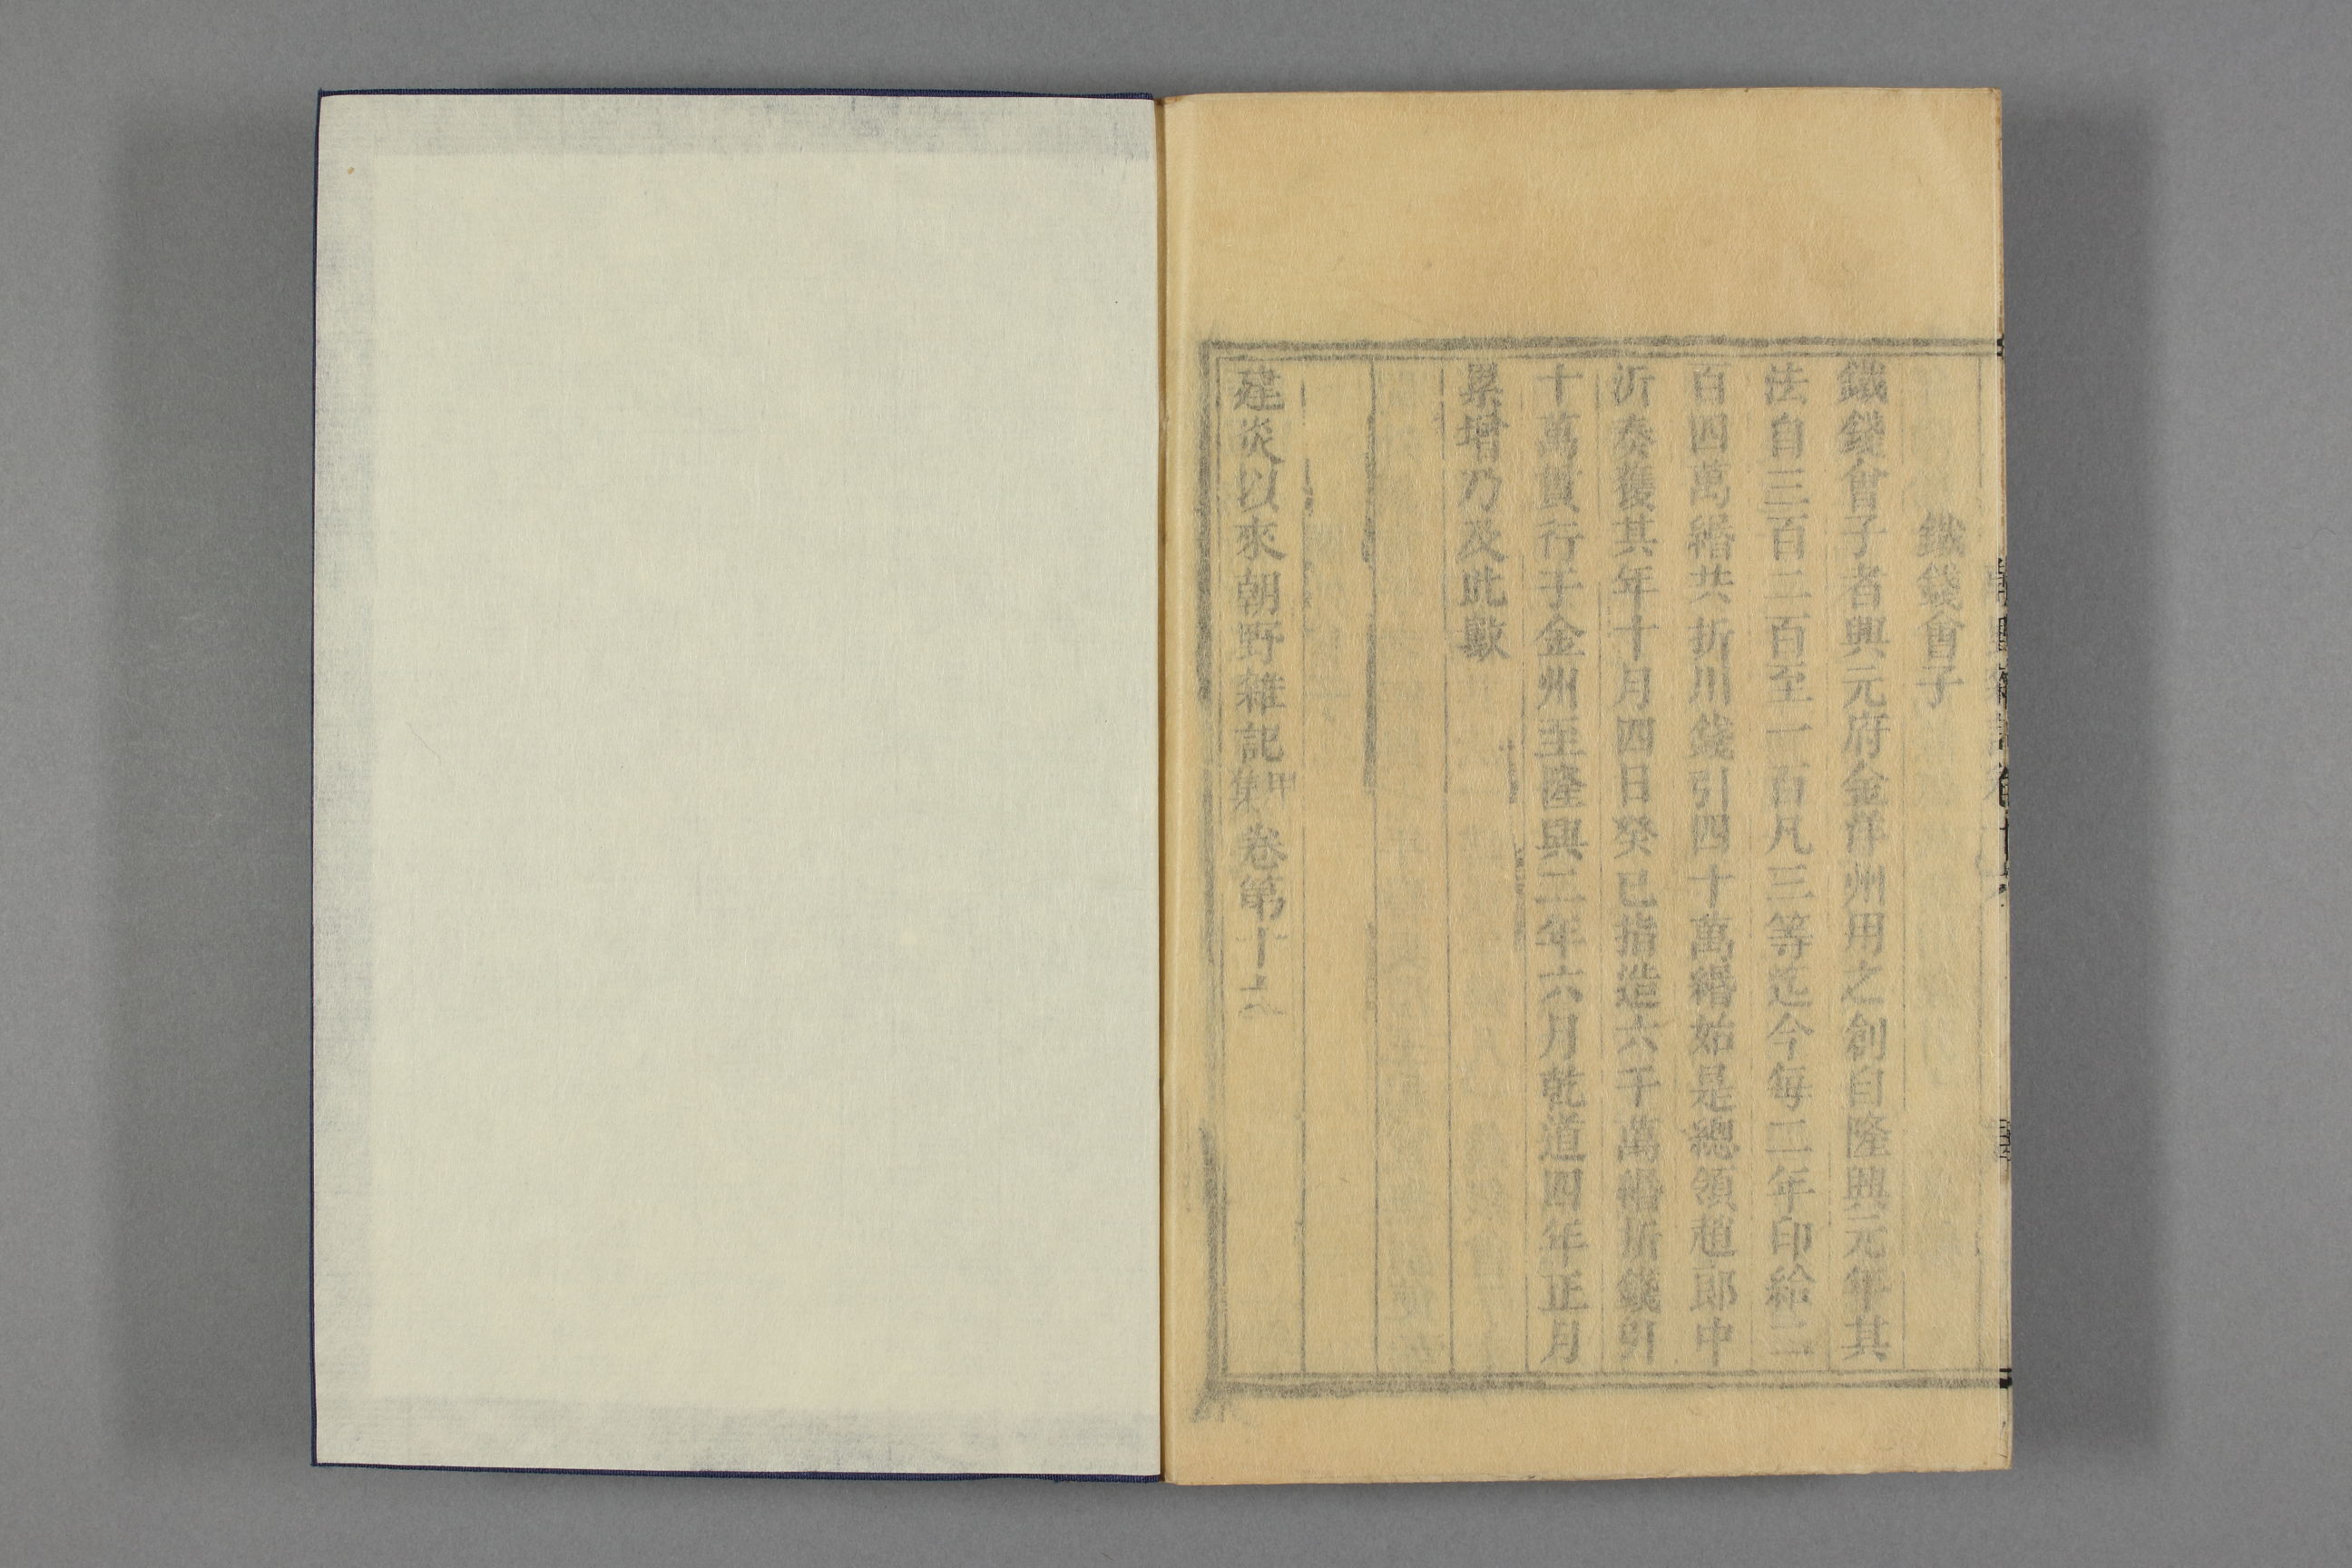 鐵錢會子
鐵錢會子者興元府金洋州用之創自隆興元年其
法自三百二百至一百凡三等迄今每二年印給二
百四萬緡共折川錢引四十萬緡始是總領趙郎中
沂奏復其年十月四日癸已指造六千萬緡折錢引
十萬貫行于金州至隆興二年六月乾道四年正月
累增乃及此數
建炎以來朝野雜記甲集卷第十六